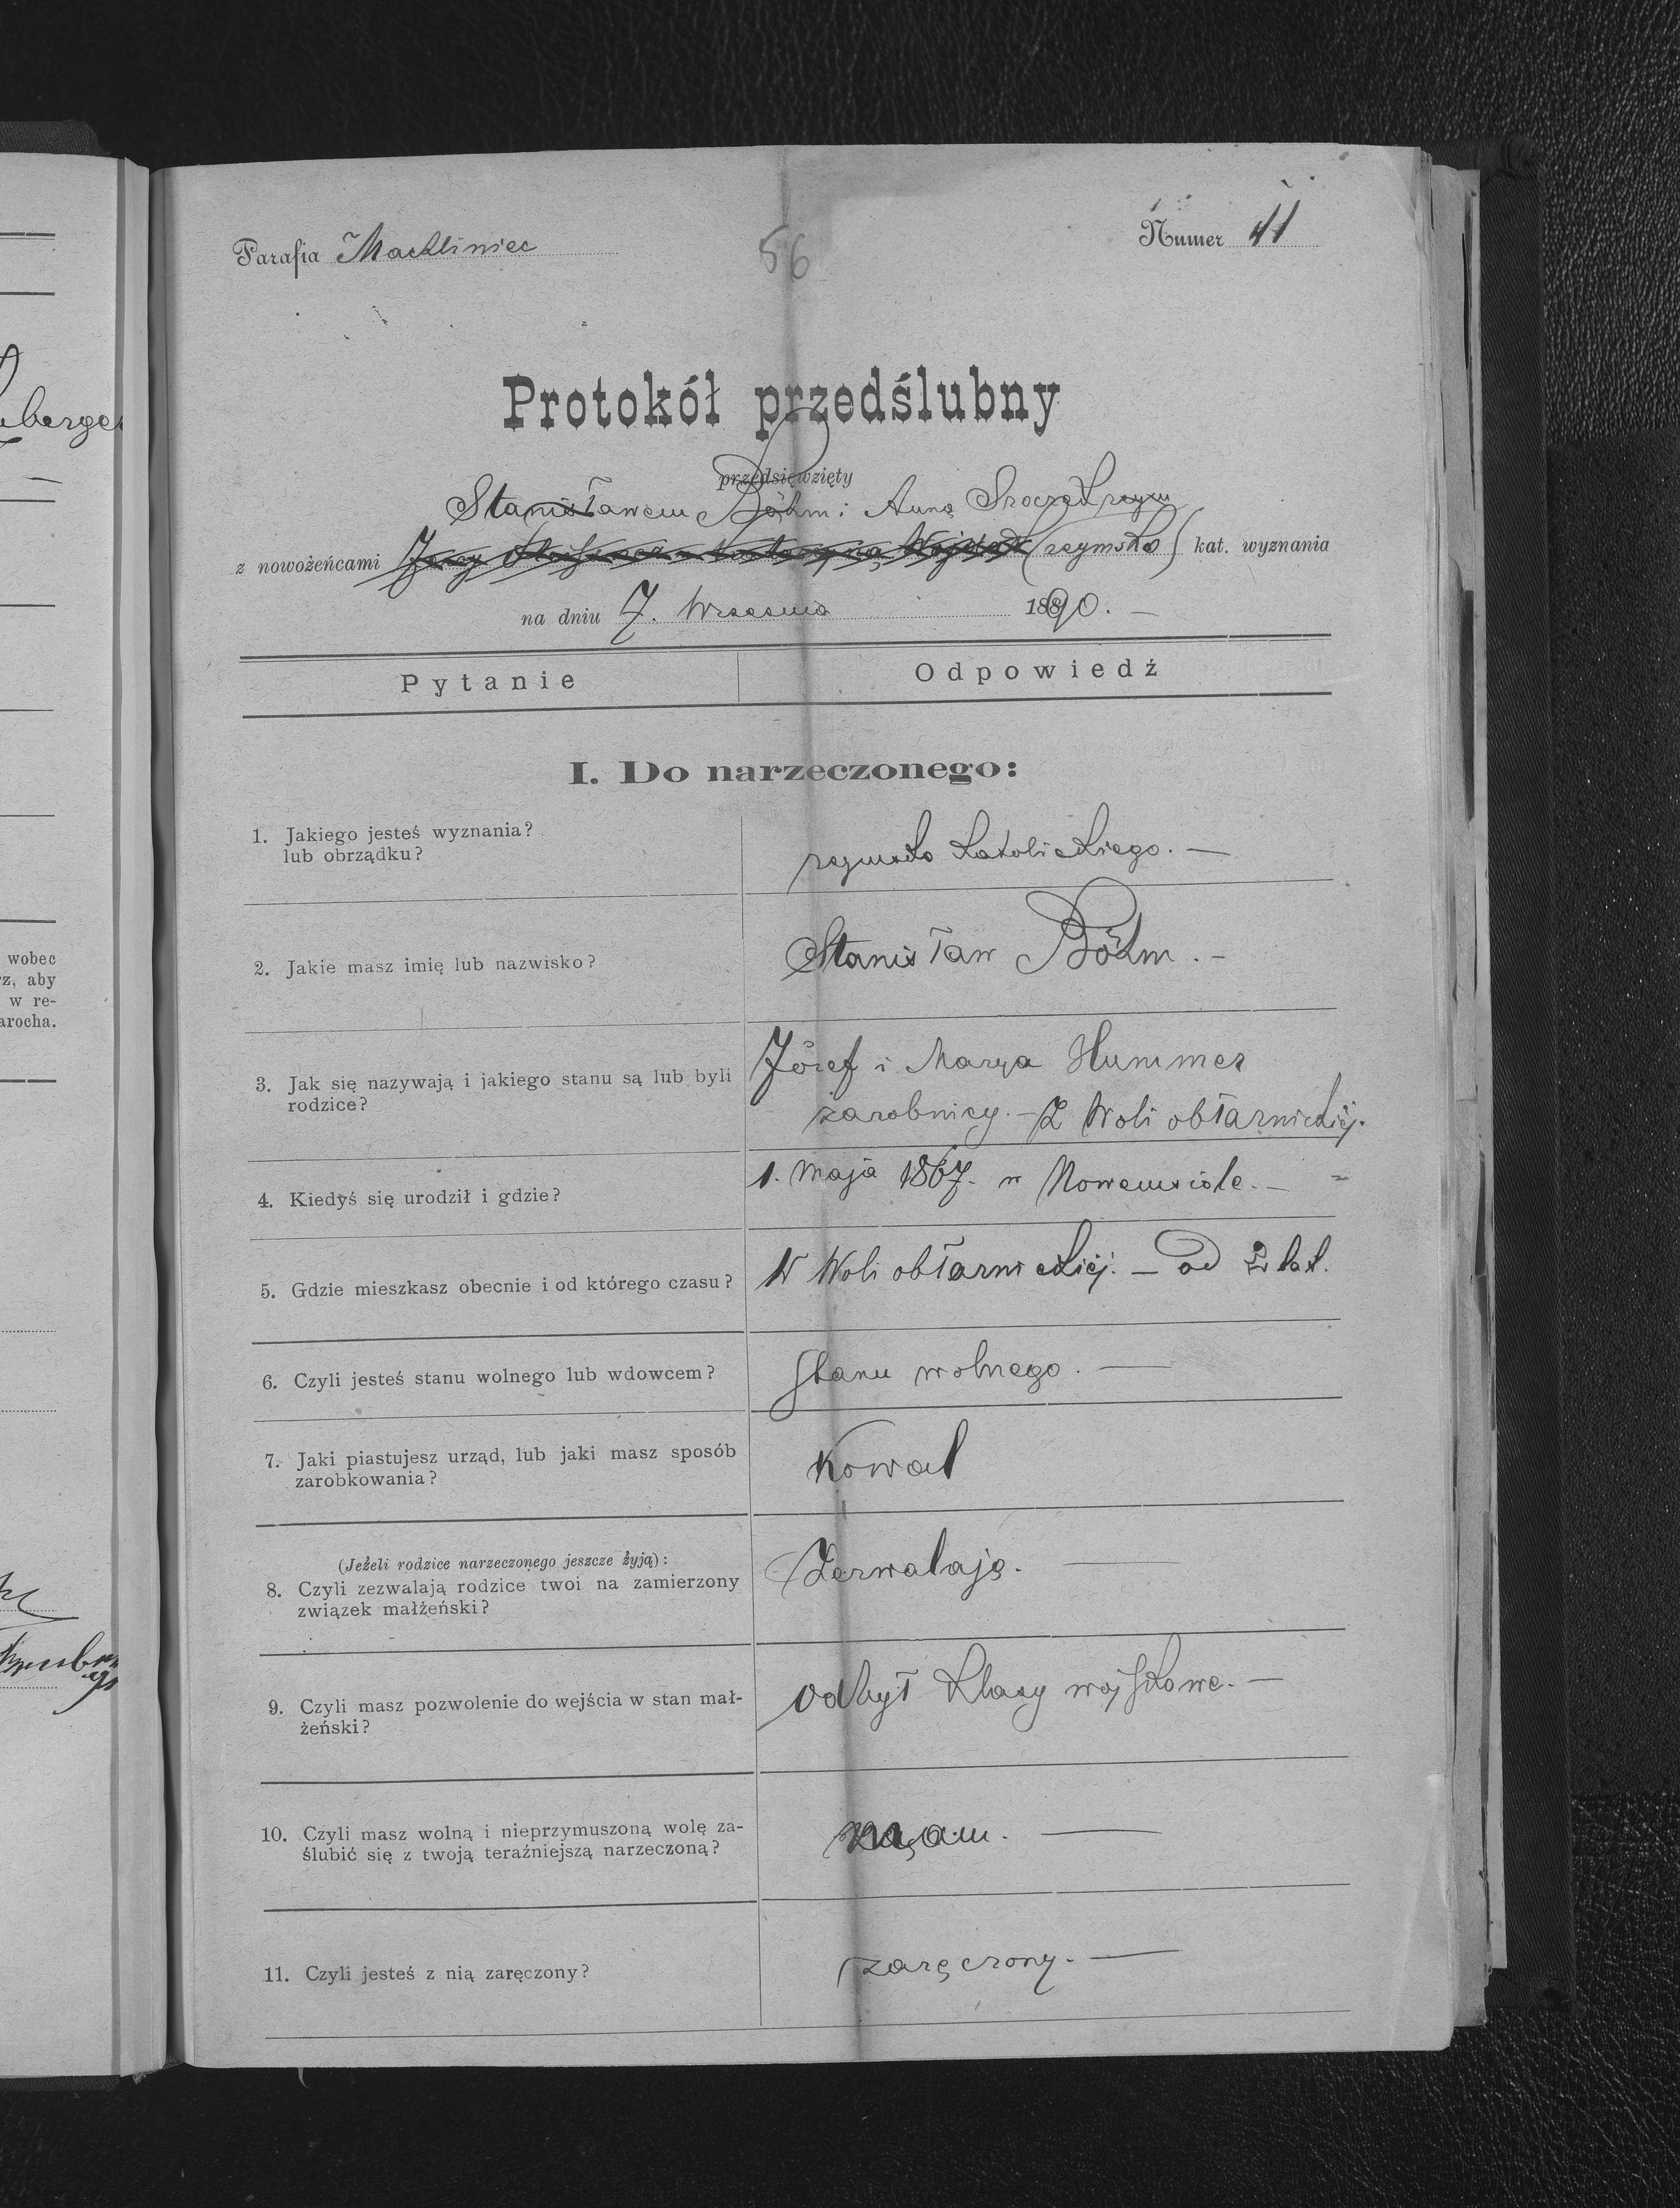 Parafia Machliniec
56
Numer 41
Protokół przedślubny
przedsięwzięty
Stanisławem Böhm i Anną
z nowożeńcami Jerzy Katarzyną (rzymsko) kat. wyznania
na dniu 7. Września 1890. —
Pytanie
Odpowiedź
I. Do narzeczonego:
1. Jakiego jesteś wyznania?
lub obrządku?
rzymsko katolickiego. —
2. Jakie masz imię lub nazwisko?
Stanisław Böhm. —
3. Jak się nazywają i jakiego stanu są lub byli
rodzice?
Józef i Marya Hummer
zarobnicy. — Z Woli obłarnickiéj.
4. Kiedyś się urodził i gdzie?
1. Maja 1867. w Nowemsiole. —
5. Gdzie mieszkasz obecnie i od którego czasu?
W Woli obłarnickiéj. — od 2 lat.
6. Czyli jesteś stanu wolnego lub wdowcem?
Stanu wolnego. —
7. Jaki piastujesz urząd, lub jaki masz sposób
zarobkowania?
Kowal
(Jeżeli rodzice narzeczonego jeszcze żyją):
8. Czyli zezwalają rodzice twoi na zamierzony
związek małżeński?
Zezwalają. —
9. Czyli masz pozwolenie do wejścia w stan mał-
żeński?
odbył klasy wojskowe. —
10. Czyli masz wolną i nieprzymuszoną wolę za-
ślubić się z twoją teraźniejszą narzeczoną?
mam. —
11. Czyli jesteś z nią zaręczony?
zaręczony. —
wobec
rz, aby
w re-
arocha.